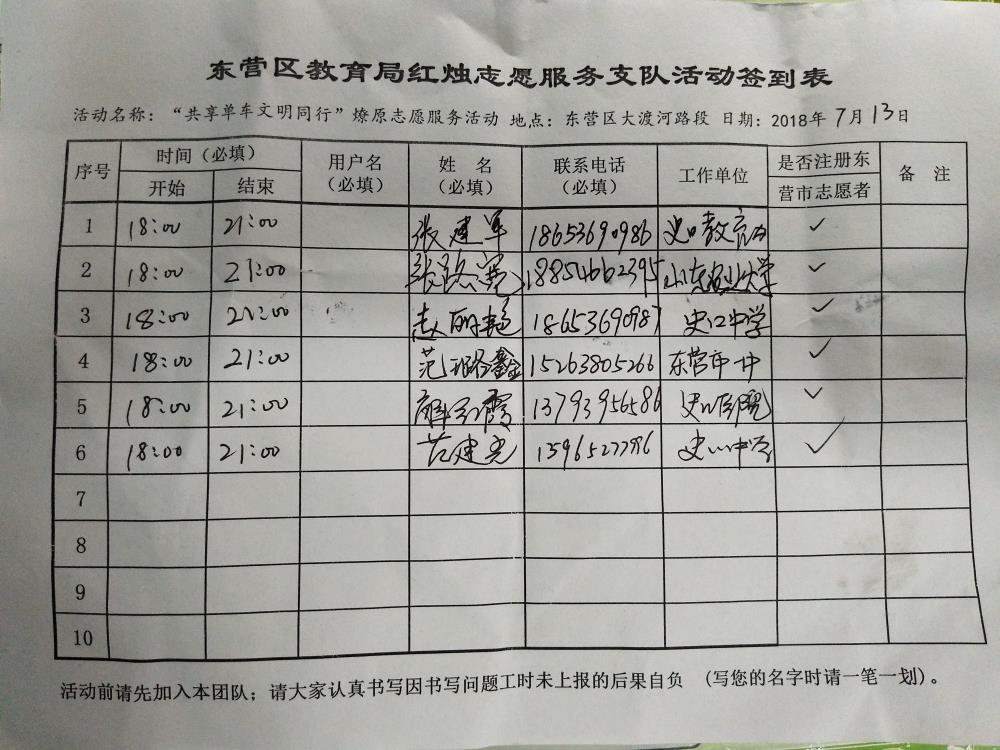 东营区教育局红烛志愿服务支队活动签到表
活动名称：“共享单车文明同行”燎原志愿服务活动 地点：东营区大渡河路段 日期：2018年 7月 13日
序号 时间（必填） 用户名（必填） 姓 名（必填） 联系电话（必填） 工作单位 是否注册东营市志愿者 备 注
开始 结束
1 18:00 21:00 张建军 18653690986 史口教育 ✓
2 18:00 21:00 张 18854662395 山东农业大学 ✓
3 18:00 21:00 赵丽艳 18653690987 史口中学 ✓
4 18:00 21:00 范璐鑫 15263805266 东营市一中 ✓
5 18:00 21:00 霞 13793956586 史口医院 ✓
6 18:00 21:00 范建光 史口中学 ✓
7
8
9
10
活动前请先加入本团队；请大家认真书写因书写问题工时未上报的后果自负 （写您的名字时请一笔一划）。